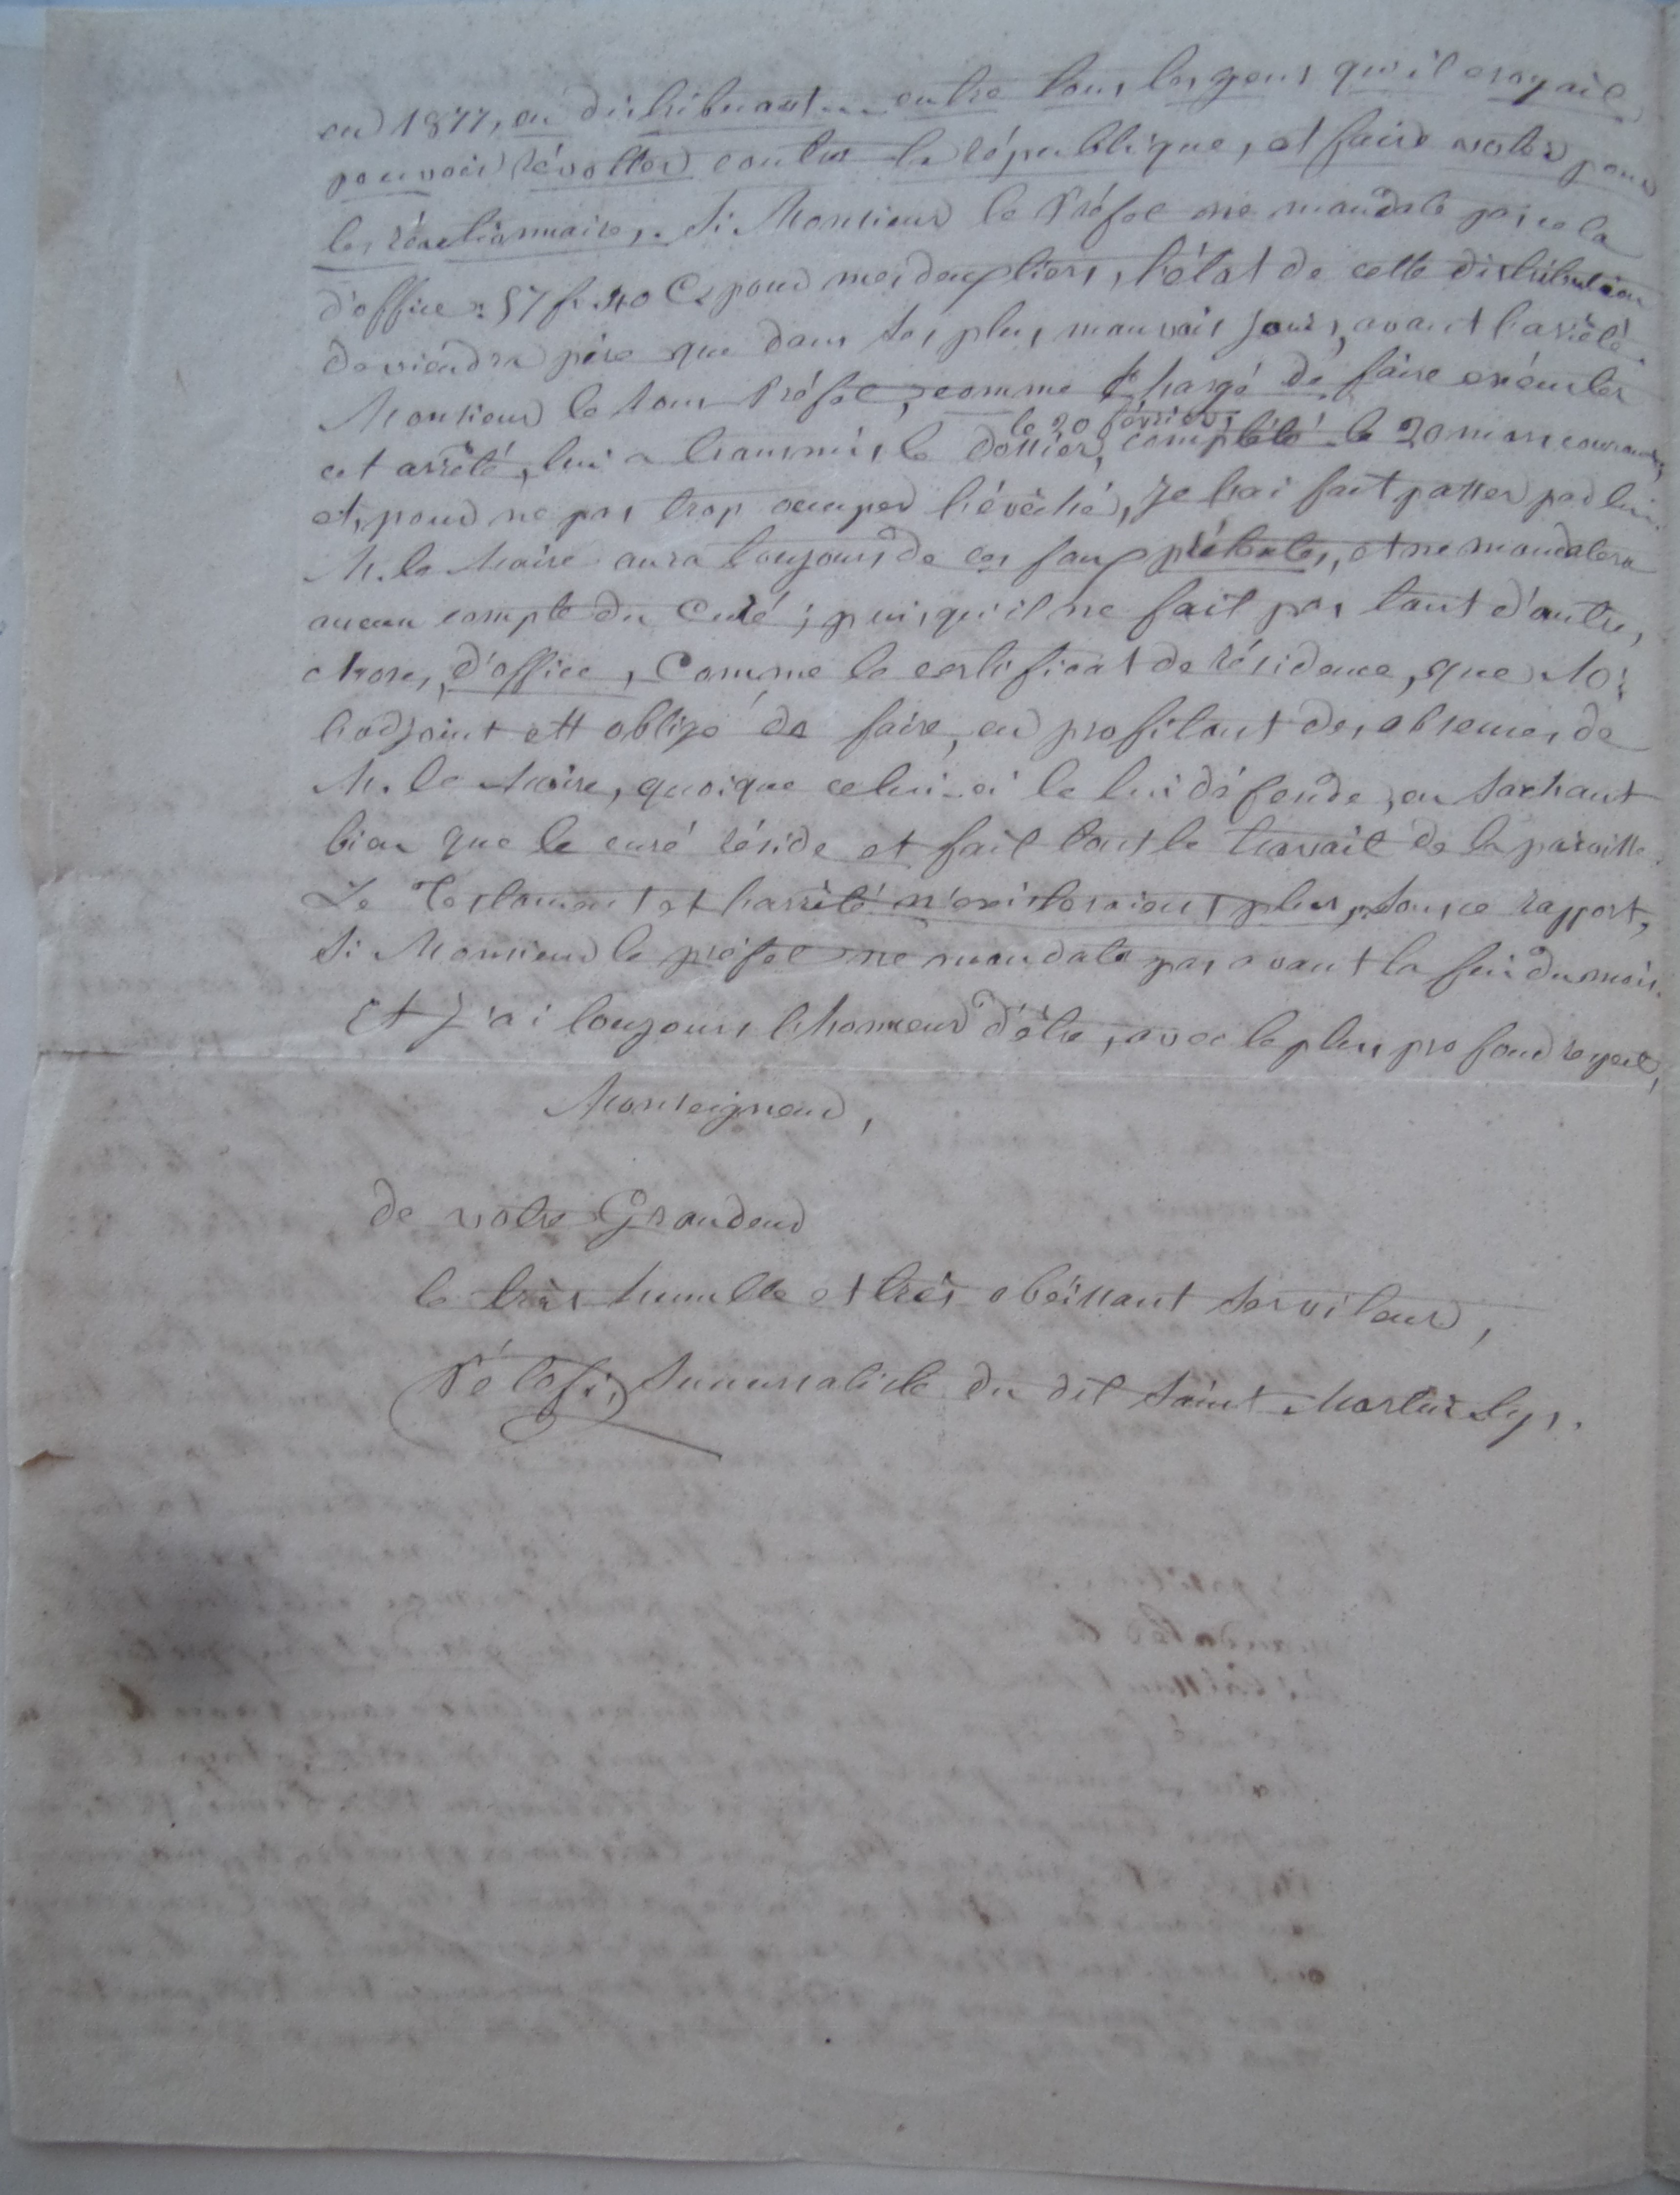 en 1877, en distribuant... entre tous les gens qu'il croyait
pouvoir révolter contre la république, et faire voter pour
les réactionnaires. Si Monsieur le Préfet ne mandate pas cela
d'office : 57 fr. 40 Cs pour mes deux tiers, l'état de cette distribution
deviendra pire que dans ses plus mauvais jours, avant l'arrêté.
Monsieur le sous Préfet, comme chargé de faire exécuter
le 20 février,
cet arrêté, lui a transmis le dossier, complété le 20 mars courant,
et, pour ne pas trop occuper l'évêché, je l'ai fait passer par lui.
M. le Maire aura toujours de ces faux prétextes, et ne mandatera
aucun compte du Curé ; puisqu'il ne fait pas tant d'autres
choses, d'office, Comme le certificat de résidence, que Mr
l'adjoint est obligé de faire, en profitant des absences de
M. le Maire, quoique celui-ci le lui défende, en sachant
bien que le curé réside et fait tout le travail de la paroisse.
Le Testament et l'arrêté n'existeraient plus, sous ce rapport,
si Monsieur le préfet ne mandate pas avant la fin du mois.
Et j'ai toujours l'honneur d'être, avec le plus profond respect,
Monseigneur,
de votre Grandeur
le très humble et très obéissant serviteur,
Pélofi, succursaliste du dit Saint Martin Lys.